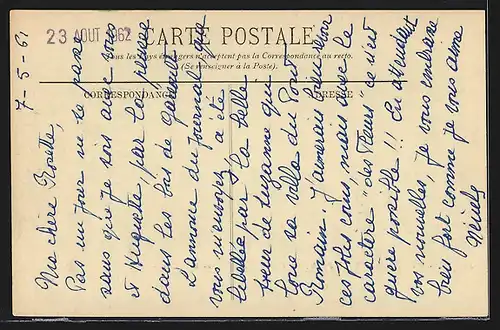 23 AOUT 1962
CARTE POSTALE
Tous les pays étrangers n'acceptent pas la Correspondance au recto.
(Se renseigner à la Poste).
CORRESPONDANCE
ADRESSE
7-5-61
Ma chère Rosette,
Pas un jour ne se passe
sans que je sois avec vous
et Huguette, par la pensée
dans les bois de
L'annonce du journal que
vous m'envoyez, a été
libellée par la belle
soeur de Suzanne qui
loue sa villa du Pont
Romain. J'aimerais bien revoir
ces jolis coins, mais avec le
caractère "des Fleurs" ce n'est
guère possible!! En attendant
vos nouvelles, je vous embrasse
bien fort comme je vous aime